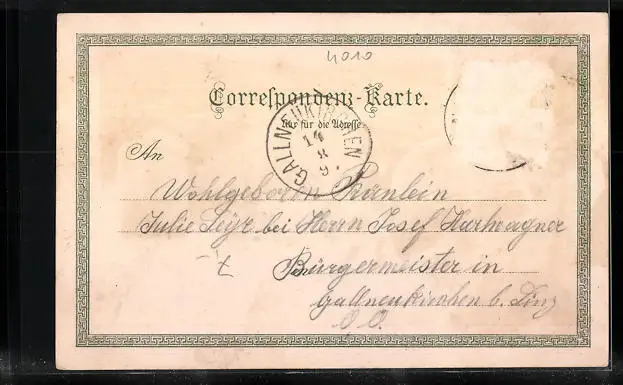 4010
Correspondenz-Karte.
Nur für die Adresse
GALLNEUKIRCHEN
14
8
9
An
Wohlgeboren Fräulein
Julie bei Herrn Josef Hartwagner
Bürgermeister in
Gallneukirchen b. Linz
O. O.